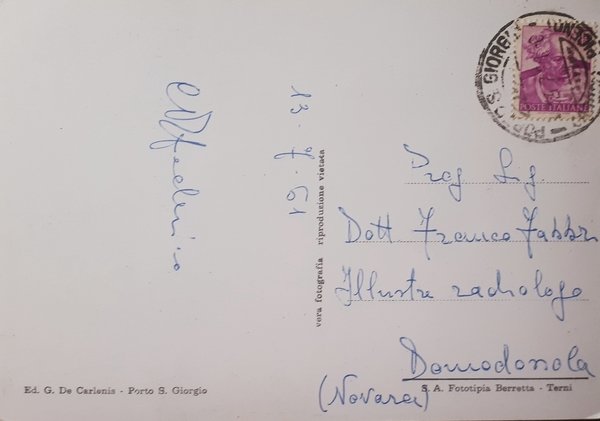 13 · 7 · 61
vera fotografia riproduzione vietata
Ed. G. De Carlenis - Porto S. Giorgio
POSTE ITALIANE
Preg Sig
Dott Franco Fabbri
Illustre radiologo
Domodossola
(Novara)
S. A. Fototipia Berretta - Terni